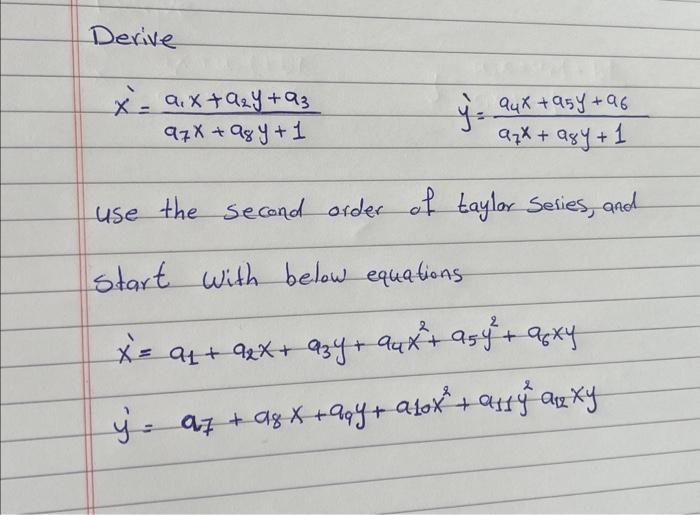 Derive
x̀ = a₁x + a₂y + a₃ / a₇x + a₈y + 1    ỳ = a₄x + a₅y + a₆ / a₇x + a₈y + 1
use the second order of taylor series, and
start with below equations
x̀ = a₁ + a₂x + a₃y + a₄x² + a₅y² + a₆xy
ỳ = a₇ + a₈x + a₉y + a₁₀x² + a₁₁y² a₁₂xy